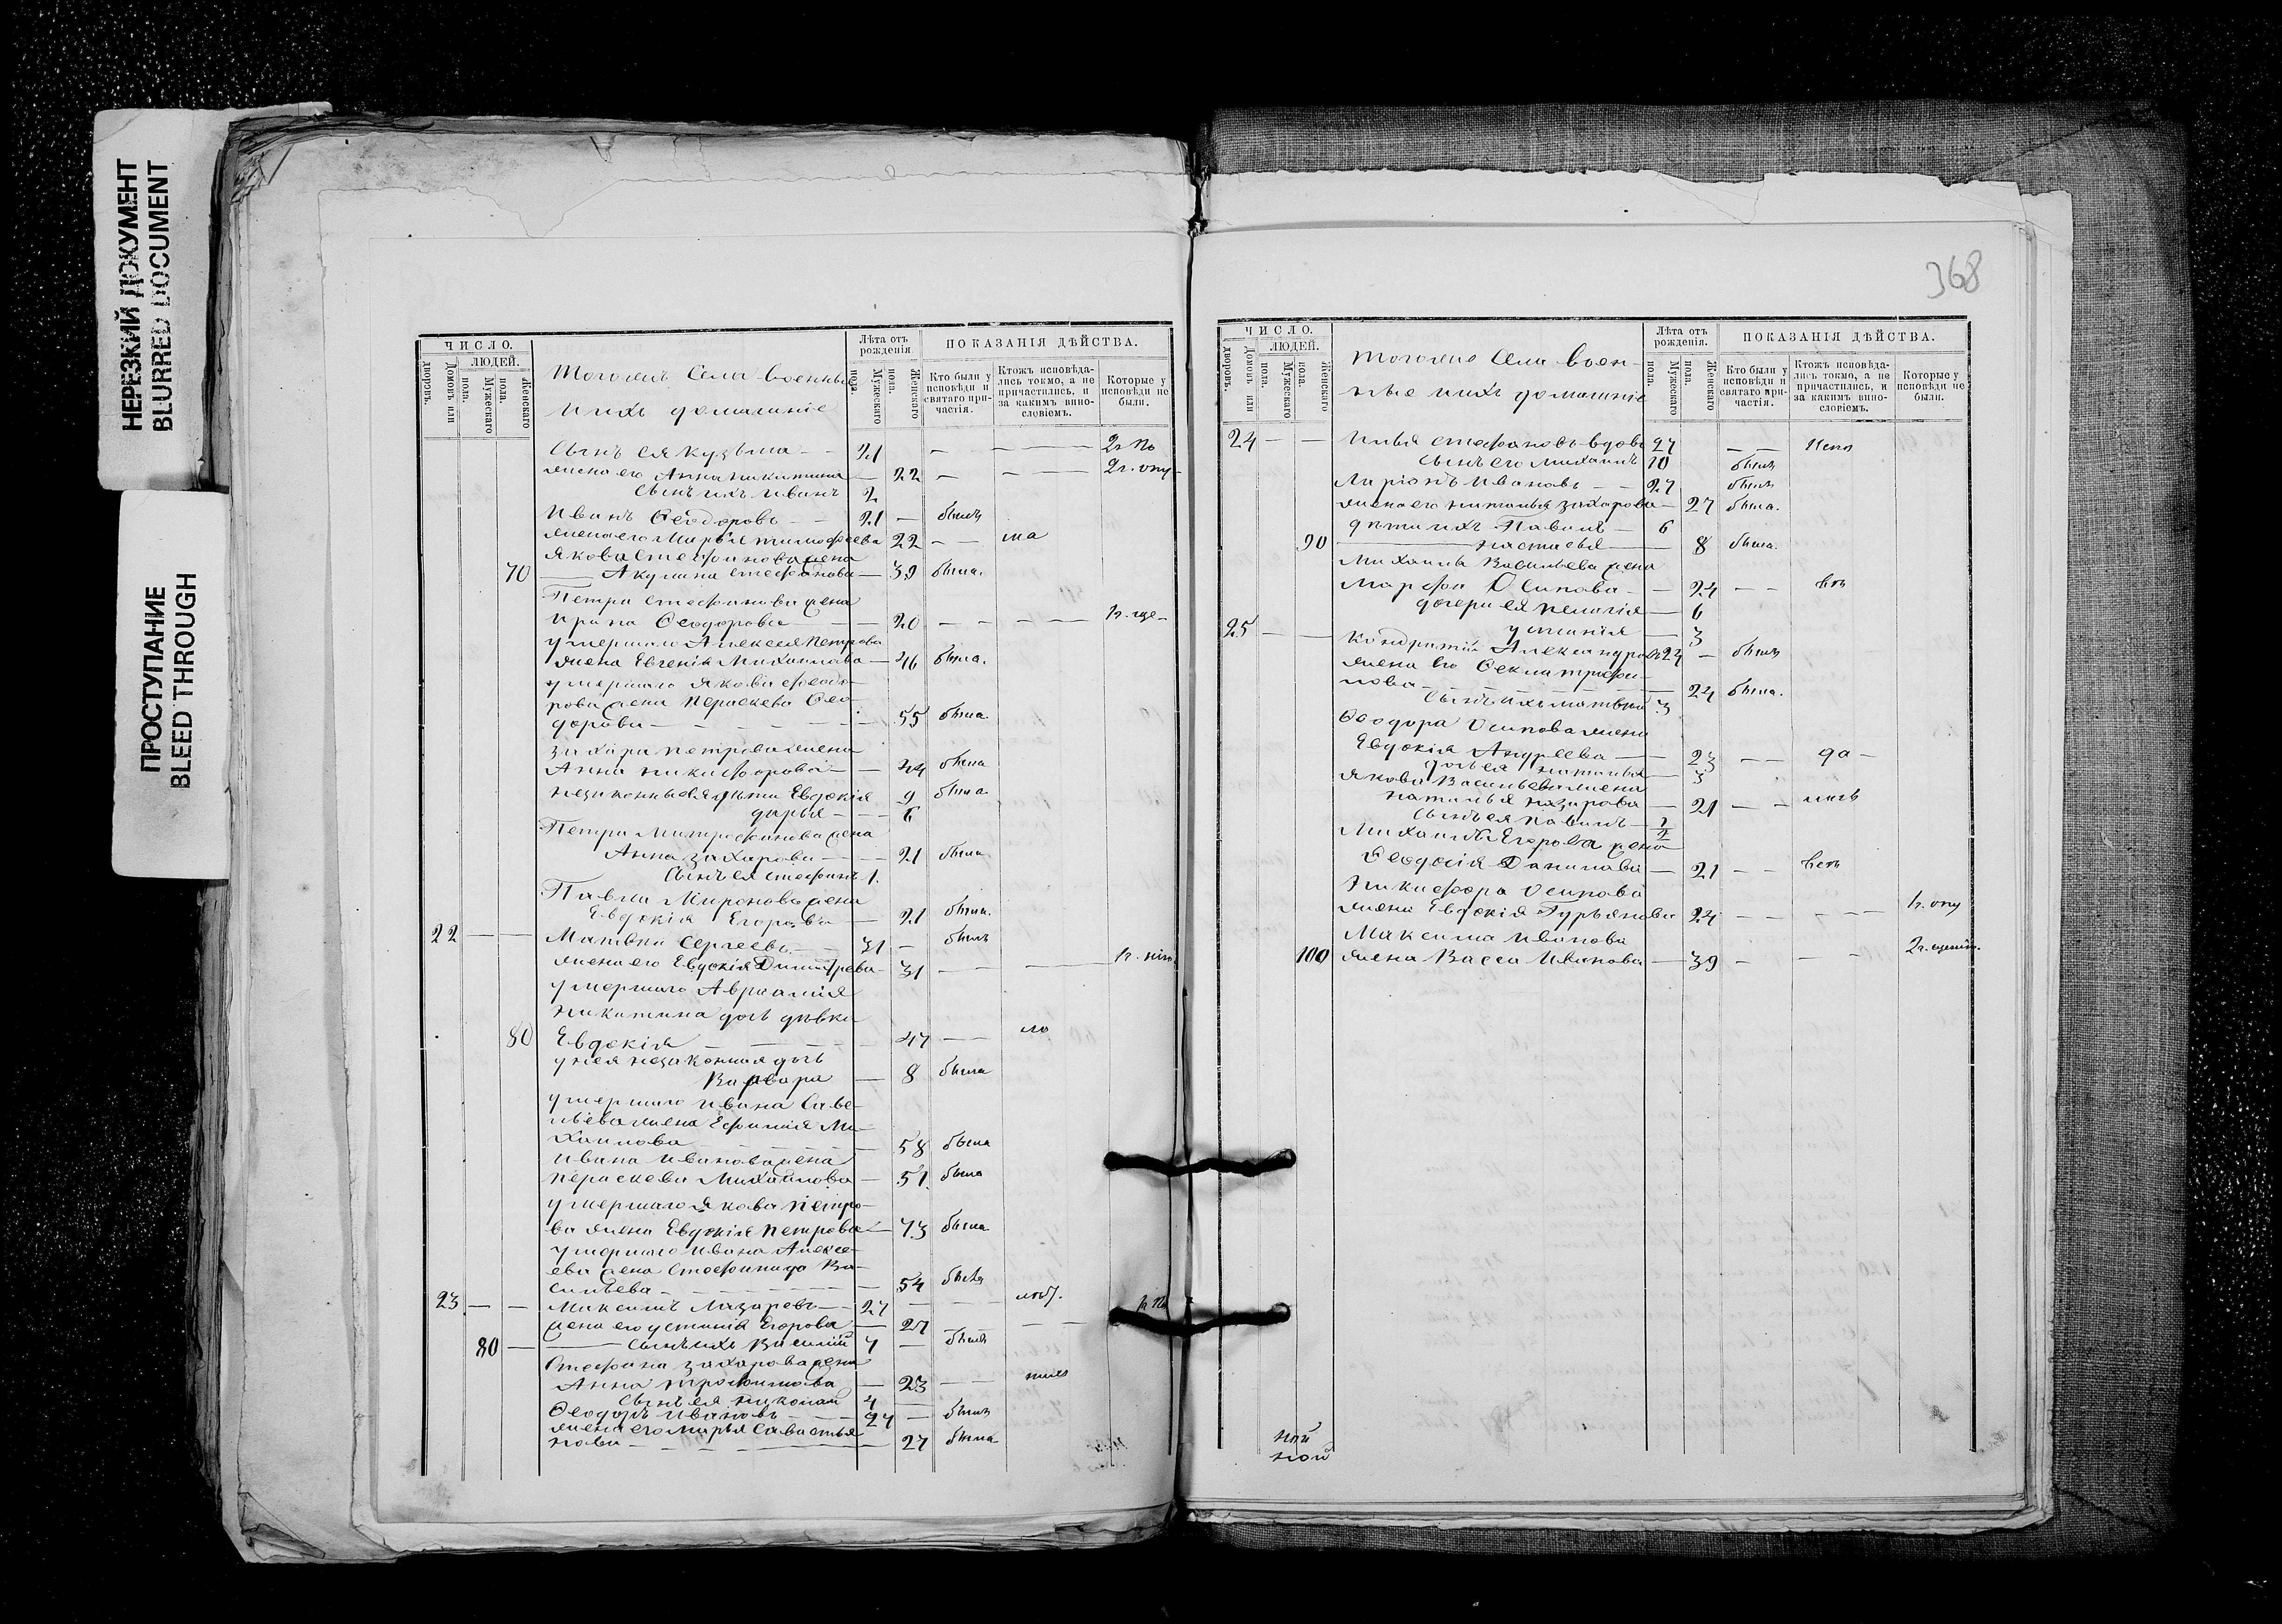 НЕРЕЗКИЙ ДОКУМЕНТ
BLURRED DOCUMENT
ПРОСТУПАНИЕ
BLEED THROUGH
ЧИСЛО.
ЛЮДЕЙ.
Домовъ или дворовъ.
Мужескаго пола.
Женскаго пола.
Тогожъ Села военные
и ихъ домашніе
Лѣта отъ рожденія
Мужескаго пола.
Женскаго пола.
ПОКАЗАНІЯ ДѢЙСТВА.
Кто были у исповѣди и святаго причастія.
Ктожъ исповѣдались токмо, а не причастились, и за какимъ винословіемъ.
Которые у исповѣди не были.
Сынъ ея Кузьма 21 — — 2г. по
жена его Анна Никитина — 22 — — 2г. опу
Сынъ ихъ Иванъ 2
Иванъ Ѳеодоровъ 21 — былъ
жена его Марья Тимофеева 22 — — ма
Якова Стефанова жена
70 Акулина Стефанова — 39 была.
Петра Стефанова жена
Ирина Ѳеодорова — 20 — — —
умершаго Алексея Петрова
жена Евгенія Михаилова — 46 была.
умершаго Якова Ѳеодо-
рова жена Параскева Ѳео-
дорова — 55 была
Захара Петрова жена
Анна Никифорова — 44 была
незаконныя дѣти Евдокія 9 была
дарья — 6
Петра Митрофанова жена
Анна Захарова — 21 была
Сынъ ея Стефанъ 1.
Павла Миронова жена
Евдокія Егорова — 21 была.
22 — — Матвей Сергеевъ 31 — былъ
жена его Евдокія Димитрева 31 — —
умершаго Авраамія
Никитина дочь дѣвка
80 Евдокія — 47 — — ло
у нея незаконная дочь
Варвара — 8 была
умершаго Ивана Саве-
льева жена Ефимія Ми-
хаилова — 58 была
Ивана Иванова жена
Параскева Михайлова — 51. была
умершаго Якова Петро-
ва жена Евдокія Петрова — 73 была
умершаго Ивана Алексе-
ева жена Стефанида Ва-
сильева — 54 была
23 — — Максимъ Лазаревъ — 27 — — люб.
жена его Устинія Егорова — 27 — —
80 — Сынъ ихъ Василій 7 — былъ
Стефана Захарова жена
Анна Трофимова — 23 — —
Сынъ ея Николай 4
Ѳеодоръ Ивановъ 27 — былъ
жена его Марья Савостья
нова — 27 была
368
ЧИСЛО.
ЛЮДЕЙ.
Домовъ или дворовъ.
Мужескаго пола.
Женскаго пола.
Тогожъ Села воен-
ные и ихъ домашніе
Лѣта отъ рожденія.
Мужескаго пола.
Женскаго пола.
ПОКАЗАНІЯ ДѢЙСТВА.
Кто были у исповѣди и святаго причастія.
Ктожъ исповѣдались токмо, а не причастились, и за какимъ винословіемъ.
Которые у исповѣди не были.
24 — — Илья Стефановъ вдовъ 27 — —
Сынъ его Михаилъ 10 былъ
Ларіонъ Ивановъ — 27 былъ
жена его Наталья Захарова — 27 была.
дѣти ихъ Павелъ — 6
90 Настасья — 8 была.
Михаила Васильева жена
Марфа Осипова — 24 — —
дочери ея Пелагія — 6
Устинія — 3
25 — — Кондратій Александровъ 24 — былъ
жена его Ѳекла Трифи-
нова — 24 была.
Сынъ ихъ Матвей 3
Ѳеодора Осипова жена
Евдокія Андреева — 23 — — да
дочь ея Наталья — 3
Якова Васильева жена
Наталья Назарова — 21 — —
Сынъ ея Павелъ — 1/2
Михаила Егорова жена
Ѳеодосія Данилова — 21 — —
Никифора Осипова
жена Евдокія Гурьянова 24 — — — 1г. опу
Максима Иванова
100 жена Васса Иванова — 39 — — —
ной